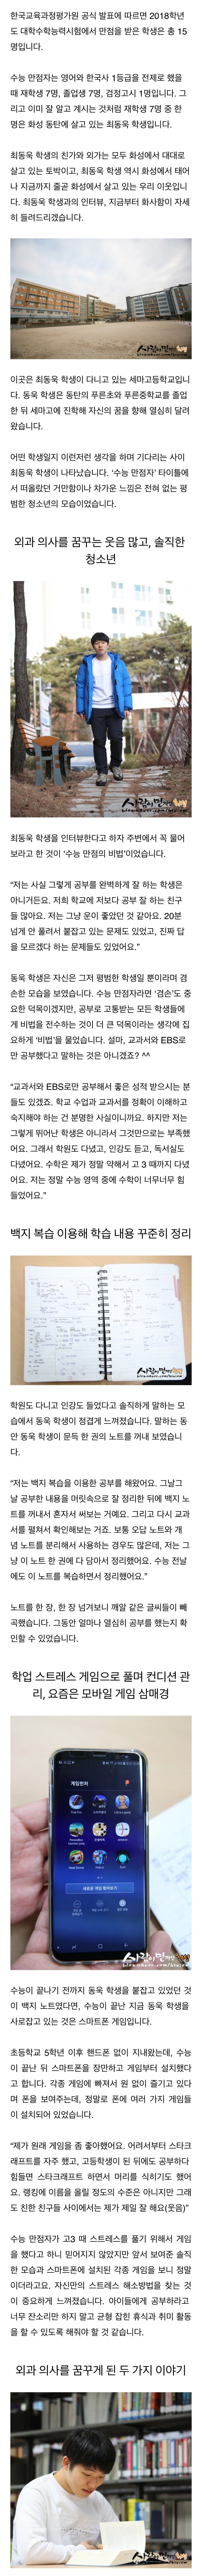 한국교육과정평가원 공식 발표에 따르면 2018학년
도 대학수학능력시험에서 만점을 받은 학생은 총 15
명입니다.
수능 만점자는 영어와 한국사 1등급을 전제로 했을
때 재학생 7명, 졸업생 7명, 검정고시 1명입니다. 그
리고 이미 잘 알고 계시는 것처럼 재학생 7명 중 한
명은 화성 동탄에 살고 있는 최동욱 학생입니다.
최동욱 학생의 친가와 외가는 모두 화성에서 대대로
살고 있는 토박이고, 최동욱 학생 역시 화성에서 태어
나 지금까지 줄곧 화성에서 살고 있는 우리 이웃입니
다. 최동욱 학생과의 인터뷰, 지금부터 화사함이 자세
히 들려드리겠습니다.
이곳은 최동욱 학생이 다니고 있는 세마고등학교입니
다. 동욱 학생은 동탄의 푸른초와 푸른중학교를 졸업
한 뒤 세마고에 진학해 자신의 꿈을 향해 열심히 달려
왔습니다.
어떤 학생일지 이런저런 생각을 하며 기다리는 사이
최동욱 학생이 나타났습니다. '수능 만점자' 타이틀에
서 떠올랐던 거만함이나 차가운 느낌은 전혀 없는 평
범한 청소년의 모습이었습니다.
외과 의사를 꿈꾸는 웃음 많고, 솔직한
청소년
최동욱 학생을 인터뷰한다고 하자 주변에서 꼭 물어
보라고 한 것이 '수능 만점의 비법'이었습니다.
"저는 사실 그렇게 공부를 완벽하게 잘 하는 학생은
아니거든요. 저희 학교에 저보다 공부 잘 하는 친구
들 많아요. 저는 그냥 운이 좋았던 것 같아요. 20분
넘게 안 풀려서 붙잡고 있는 문제도 있었고, 진짜 답
을 모르겠다 하는 문제들도 있었어요."
동욱 학생은 자신은 그저 평범한 학생일 뿐이라며 겸
손한 모습을 보였습니다. 수능 만점자라면 '겸손'도 중
요한 덕목이겠지만, 공부로 고통받는 모든 학생들에
게 비법을 전수하는 것이 더 큰 덕목이라는 생각에 집
요하게 '비법'을 물었습니다. 설마, 교과서와 EBS로
만 공부했다고 말하는 것은 아니겠죠? ^^
"교과서와 EBS로만 공부해서 좋은 성적 받으시는 분
들도 있겠죠. 학교 수업과 교과서를 정확이 이해하고
숙지해야 하는 건 분명한 사실이니까요. 하지만 저는
그렇게 뛰어난 학생은 아니라서 그것만으로는 부족했
어요. 그래서 학원도 다녔고, 인강도 듣고, 독서실도
다녔어요. 수학은 제가 정말 약해서 고 3 때까지 다녔
어요. 저는 정말 수능 영역 중에 수학이 너무너무 힘
들었어요."
백지 복습 이용해 학습 내용 꾸준히 정리
학원도 다니고 인강도 들었다고 솔직하게 말하는 모
습에서 동욱 학생이 정겹게 느껴졌습니다. 말하는 동
안 동욱 학생이 문득 한 권의 노트를 꺼내 보였습니
다.
"저는 백지 복습을 이용한 공부를 해왔어요. 그날그
날 공부한 내용을 머릿속으로 잘 정리한 뒤에 백지 노
트를 꺼내서 혼자서 써보는 거예요. 그리고 다시 교과
서를 펼쳐서 확인해보는 거죠. 보통 오답 노트와 개
념 노트를 분리해서 사용하는 경우도 많은데, 저는 그
냥 이 노트 한 권에 다 담아서 정리했어요. 수능 전날
에도 이 노트를 복습하면서 정리했어요."
노트를 한 장, 한 장 넘겨보니 깨알 같은 글씨들이 빼
곡했습니다. 그동안 얼마나 열심히 공부를 했는지 확
인할 수 있었습니다.
학업 스트레스 게임으로 풀며 컨디션 관
리, 요즘은 모바일 게임 삼매경
게임런처
수능이 끝나기 전까지 동욱 학생을 붙잡고 있었던 것
이 백지 노트였다면, 수능이 끝난 지금 동욱 학생을
사로잡고 있는 것은 스마트폰 게임입니다.
초등학교 5학년 이후 핸드폰 없이 지내왔는데, 수능
이 끝난 뒤 스마트폰을 장만하고 게임부터 설치했다
고 합니다. 각종 게임에 빠져서 원 없이 즐기고 있다
며 폰을 보여주는데, 정말로 폰에 여러 가지 게임들
이 설치되어 있었습니다.
"제가 원래 게임을 좀 좋아했어요. 어려서부터 스타크
래프트를 자주 했고, 고등학생이 된 뒤에도 공부하다
힘들면 스타크래프트 하면서 머리를 식히기도 했어
요. 랭킹에 이름을 올릴 정도의 수준은 아니지만 그래
도 친한 친구들 사이에서는 제가 제일 잘 해요(웃음)"
수능 만점자가 고3 때 스트레스를 풀기 위해서 게임
을 했다고 하니 믿어지지 않았지만 앞서 보여준 솔직
한 모습과 스마트폰에 설치된 각종 게임을 보니 정말
이더라고요. 자신만의 스트레스 해소방법을 찾는 것
이 중요하게 느껴졌습니다. 아이들에게 공부하라고
너무 잔소리만 하지 말고 균형 잡힌 휴식과 취미 활동
을 할 수 있도록 해줘야 할 것 같습니다.
외과 의사를 꿈꾸게 된 두 가지 이야기